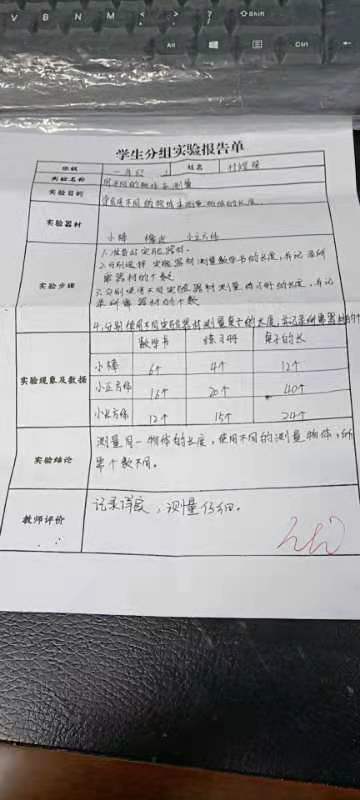 V B N M < > ? ⇧Shift
Alt Ctrl
学生分组实验报告单
班级 一年级 姓名
实验名称 用不同的物体来测量
实验目的 学会用不同的物体来测量物体的长度
实验器材
小棒 橡皮 小正方体
1.准备好实验器材.
2.分别选择 实验器材测量数学书的长度,并记录所
需器材的个数
实验步骤
3.分别使用不同实验器材测量练习册的长度,并记
录所需器材的个数
4.分别使用不同实验器材测量桌子的长度,并记录所需器材的个
数学书 练习册 桌子的长
实验现象及数据
小棒 6个 4个 12个
小正方体 16个 20个 40个
小长方体 12个 15个 24个
测量同一物体的长度,使用不同的测量物体,所
实验结论
需个数不同。
教师评价
记录详实,测量仔细。